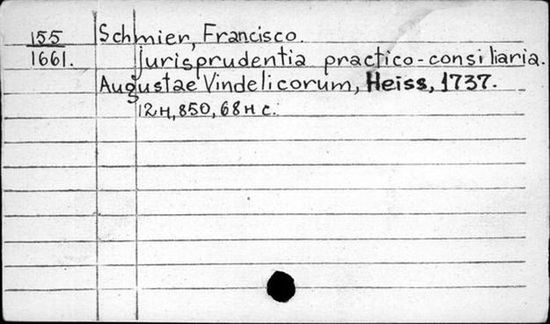 155 Schmier, Francisco.
1661. Jurisprudentia practico-consiliaria.
Augustae Vindelicorum, Heiss, 1737.
12н, 850, 68н с.